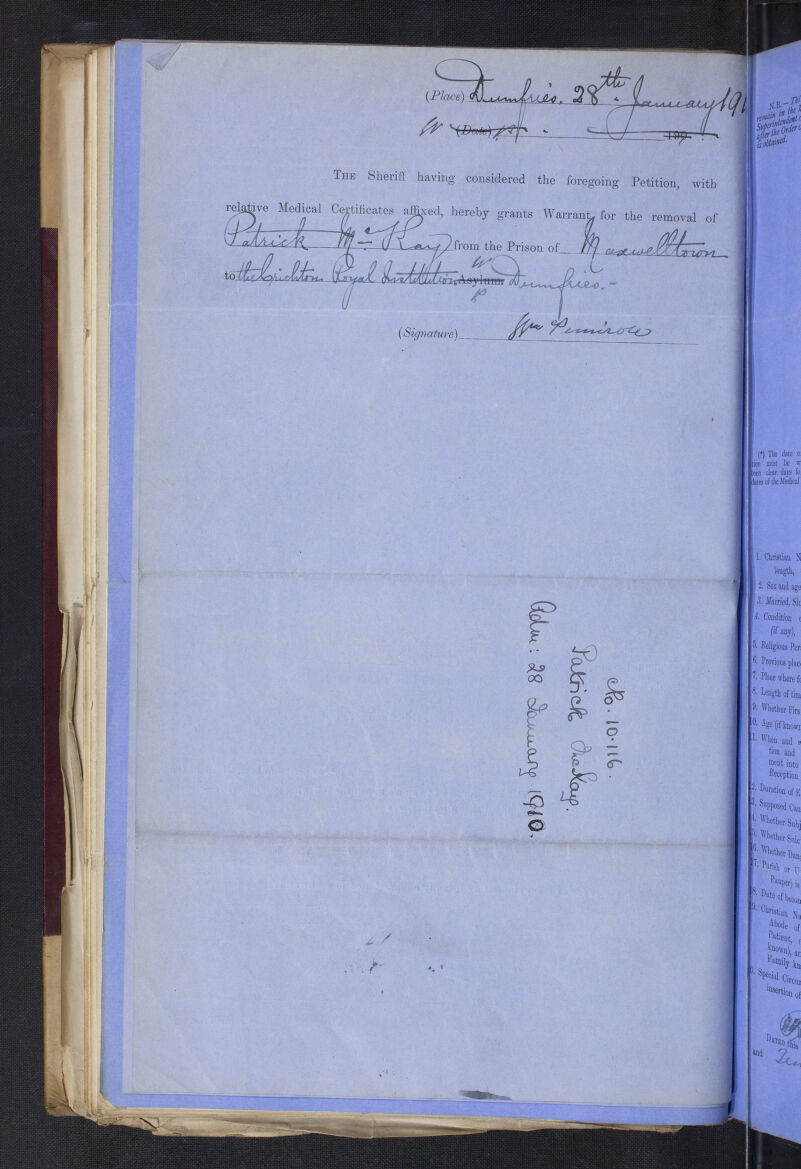 (Place) Dumfries. 28th January 191
W (Date) P. 189 .
THE Sheriff having considered the foregoing Petition, with
relative Medical Certificates affixed, hereby grants Warrant for the removal of
Patrick Mc Kay from the Prison of Maxwelltown
to the Crichton Royal Institution Asylum W P Dumfries. -
(Signature) Wm Primrose
No. 10.116.
Patrick McKay.
Adm: 28 January 1910.
N.B.—Th
remain in the
Superintendent
after the Order
is obtained.
(*) The date o
tion must be w
teen clear days fo
dates of the Medical
1. Christian N
length,
2. Sex and age
3. Married, Si
4. Condition
(if any),
5. Religious Per
6. Previous plac
7. Place where f
8. Length of tim
9. Whether Firs
10. Age (if known
11. When and w
tion and
ment into
Reception
2. Duration of E
3. Supposed Cau
4. Whether Subj
5. Whether Suic
6. Whether Dan
17. Parish or U
Pauper) is
8. Date of becom
9. Christian Na
Abode of
Patient,
known), an
Family kn
0. Special Circu
insertion of
DATED this
and